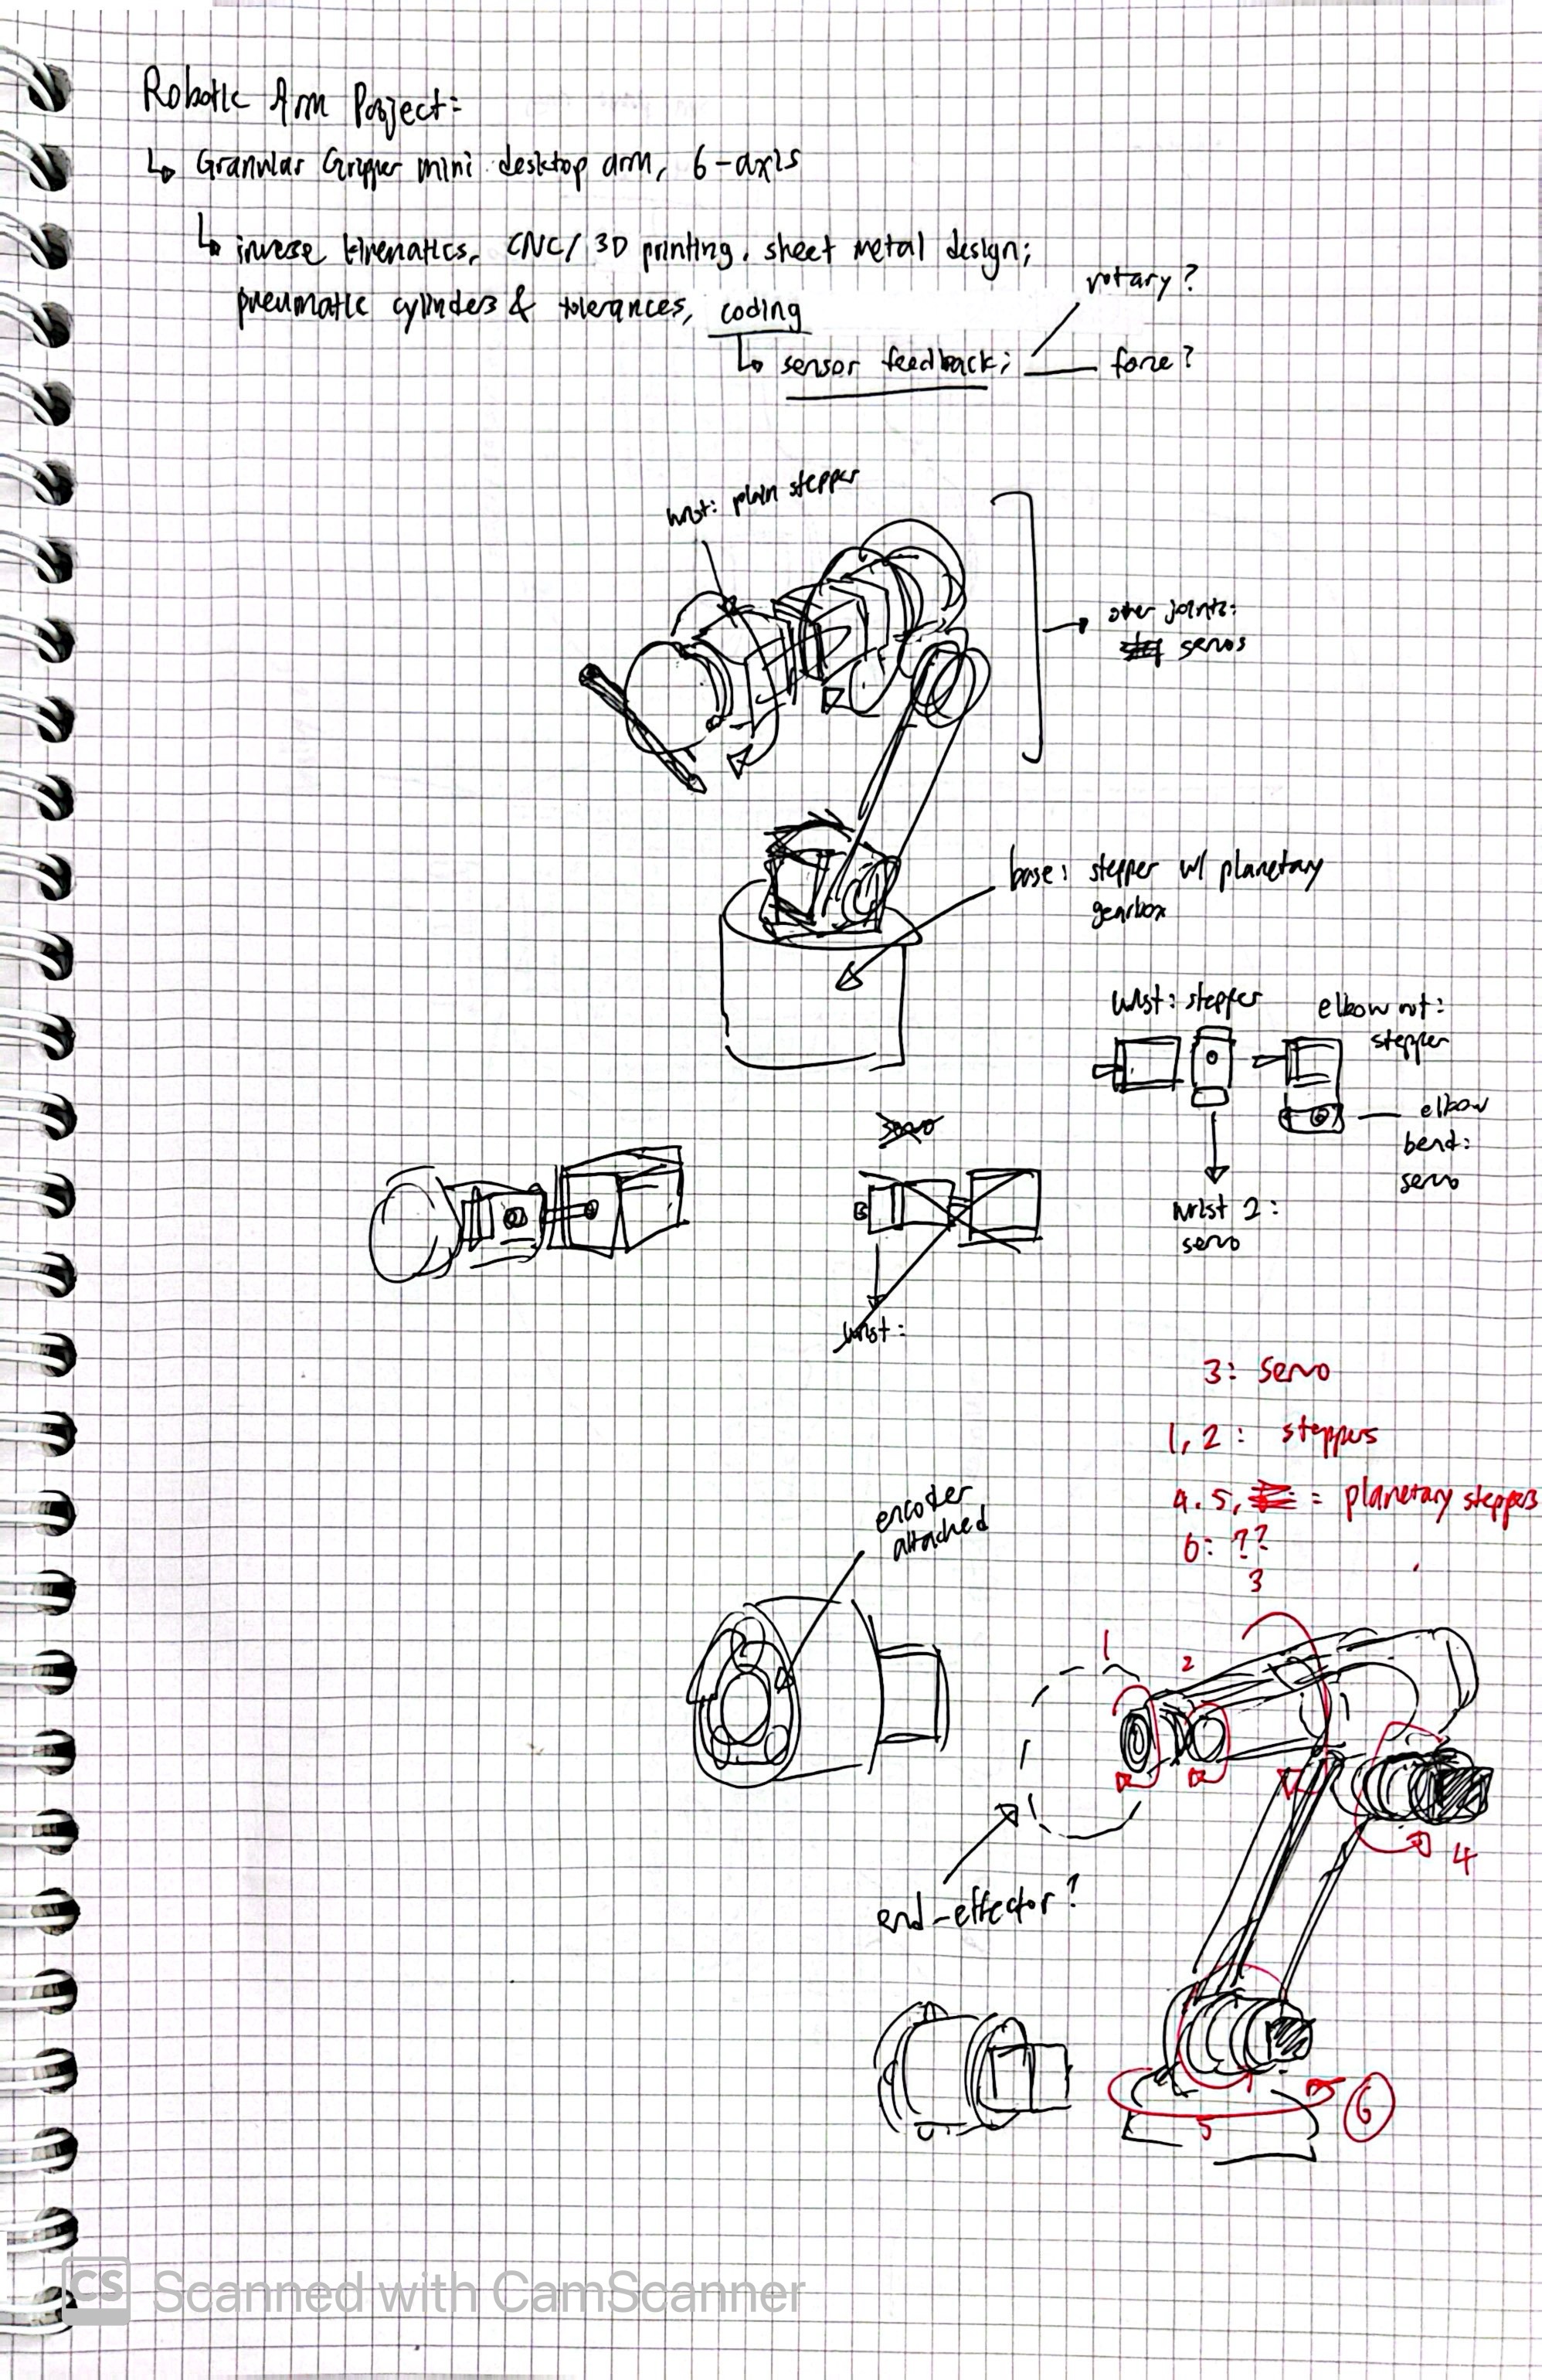 Robotic Arm Project:
↳ Granular Gripper mini desktop arm, 6-axis
↳ inverse kinematics, CNC/3D printing, sheet metal design;
pneumatic cylinders & tolerances, coding
↳ sensor feedback;
rotary?
force?
wrist: plain stepper
other joints:
servos
base: stepper w/ planetary
gearbox
wrist: stepper
elbow rot:
stepper
elbow
bend:
servo
wrist 2:
servo
servo
wrist:
3: servo
1, 2: steppers
4, 5, = planetary steppers
6: ??
encoder
attached
3
1
2
4
end-effector?
5
6
CS Scanned with CamScanner